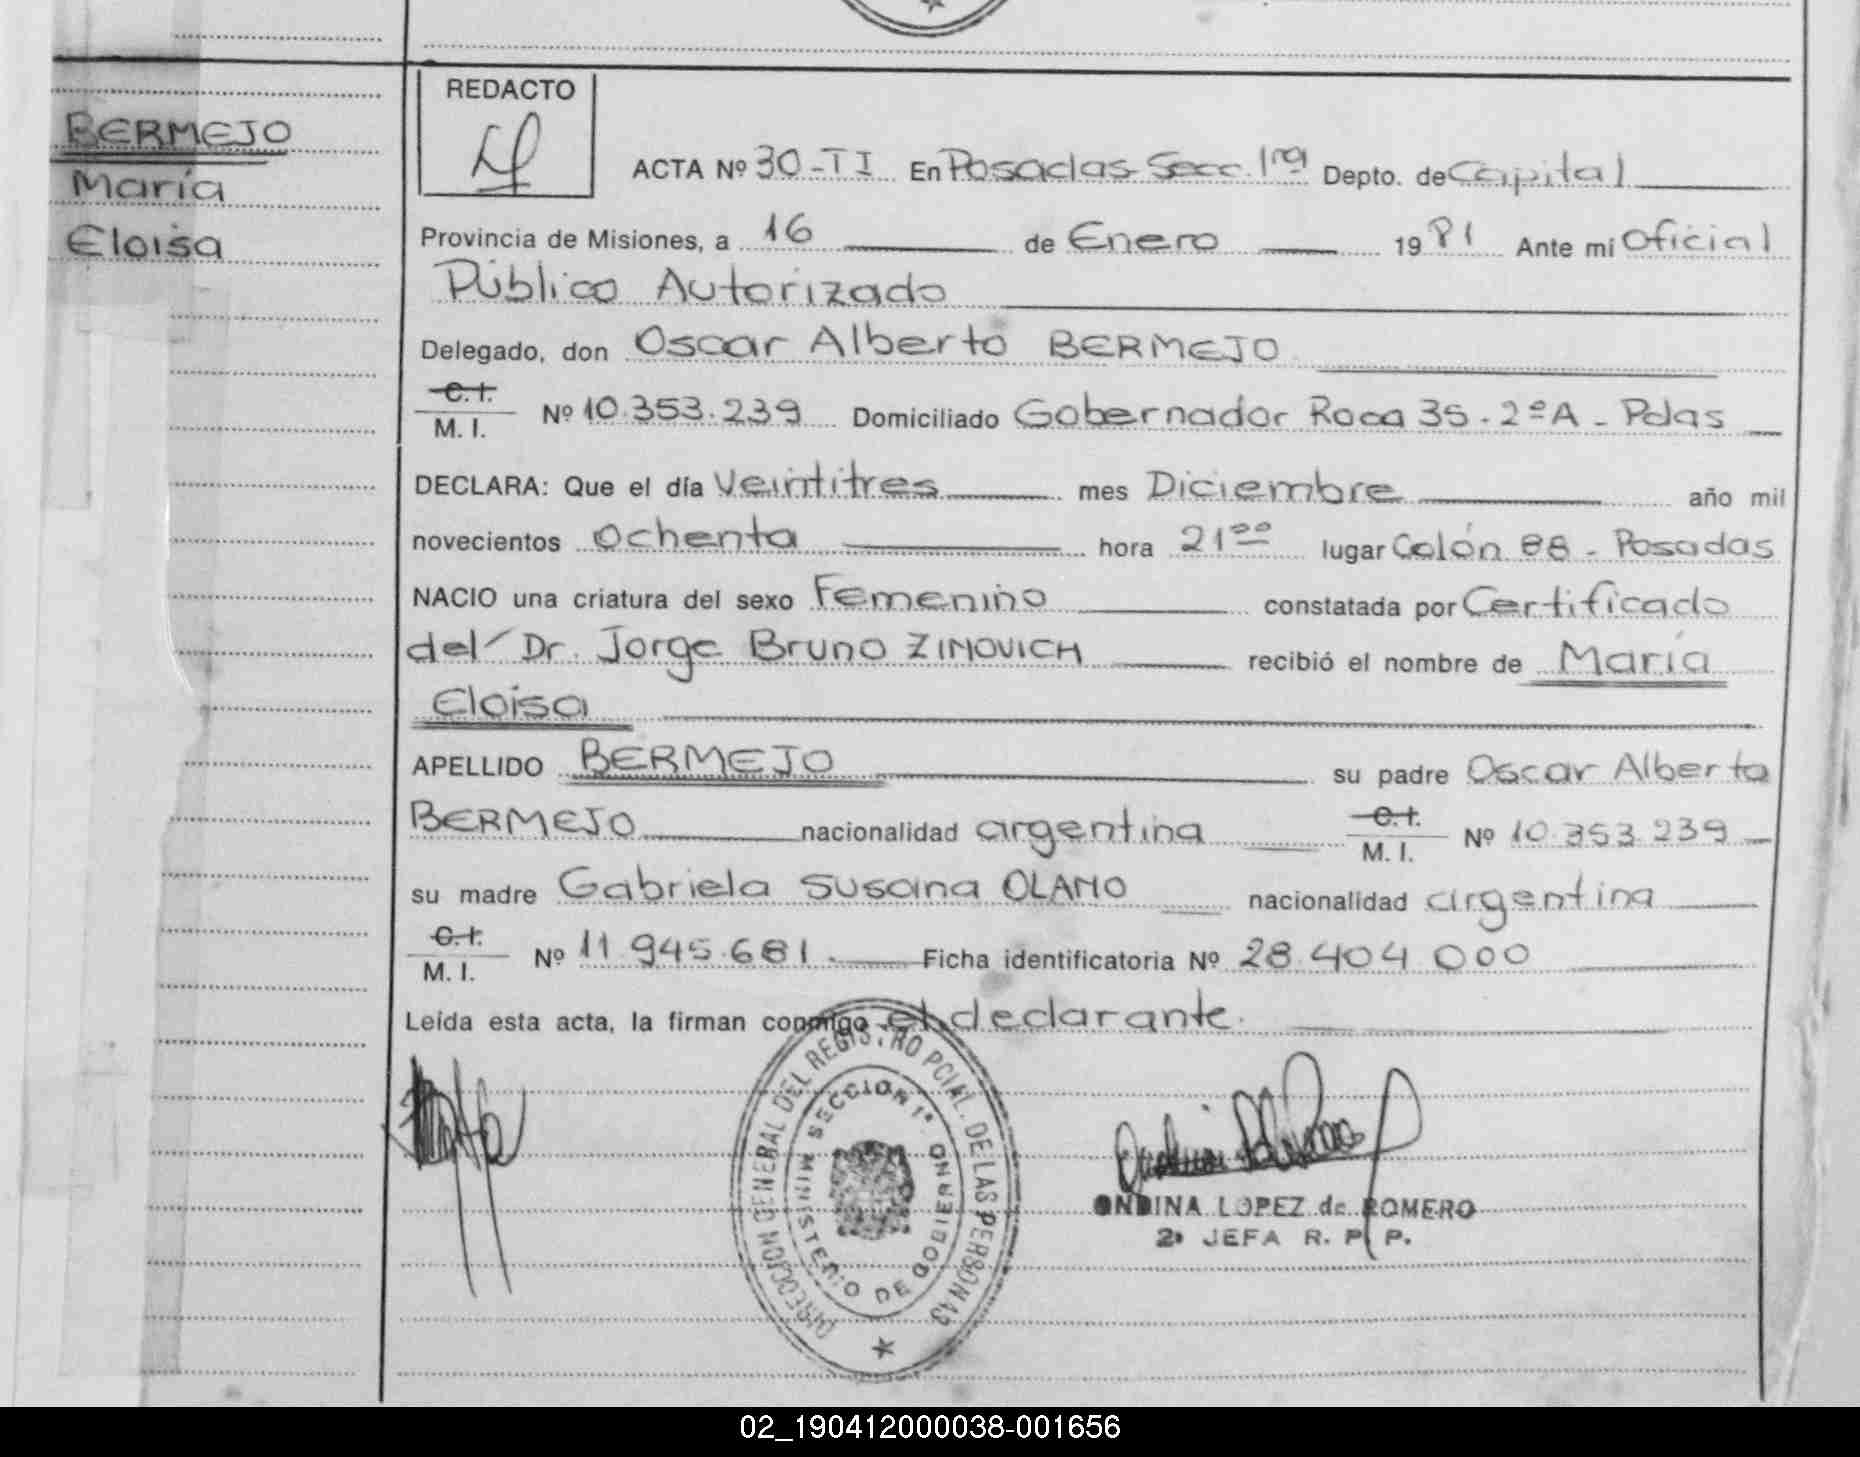 BERMEJO
María
Eloisa
REDACTO
ACTA Nº 30-TI En Posadas-Secc. 1ra Depto. de Capital
Provincia de Misiones, a 16 de Enero 1981 Ante mi Oficial
Público Autorizado
Delegado, don Oscar Alberto BERMEJO
C.I.
M. I. Nº 10.353.239 Domiciliado Gobernador Roca 35-2ºA - Pdas
DECLARA: Que el día Veintitres mes Diciembre año mil
novecientos Ochenta hora 21ºº lugar Colón 88 - Posadas
NACIO una criatura del sexo Femenino constatada por Certificado
del Dr. Jorge Bruno ZIMOVICH recibió el nombre de María
Eloisa
APELLIDO BERMEJO su padre Oscar Alberto
BERMEJO nacionalidad argentina C.I. M. I. Nº 10.353.239
su madre Gabriela Susana OLAMO nacionalidad argentina
C.I.
M. I. Nº 11.945.681. Ficha identificatoria Nº 28.404.000
Leída esta acta, la firman conmigo el declarante.
DIRECCION GENERAL DEL REGISTRO PCIAL. DE LAS PERSONAS
SECCION 1ª
MINISTERIO DE GOBIERNO
ONDINA LOPEZ de ROMERO
2ª JEFA R. P. P.
02_190412000038-001656